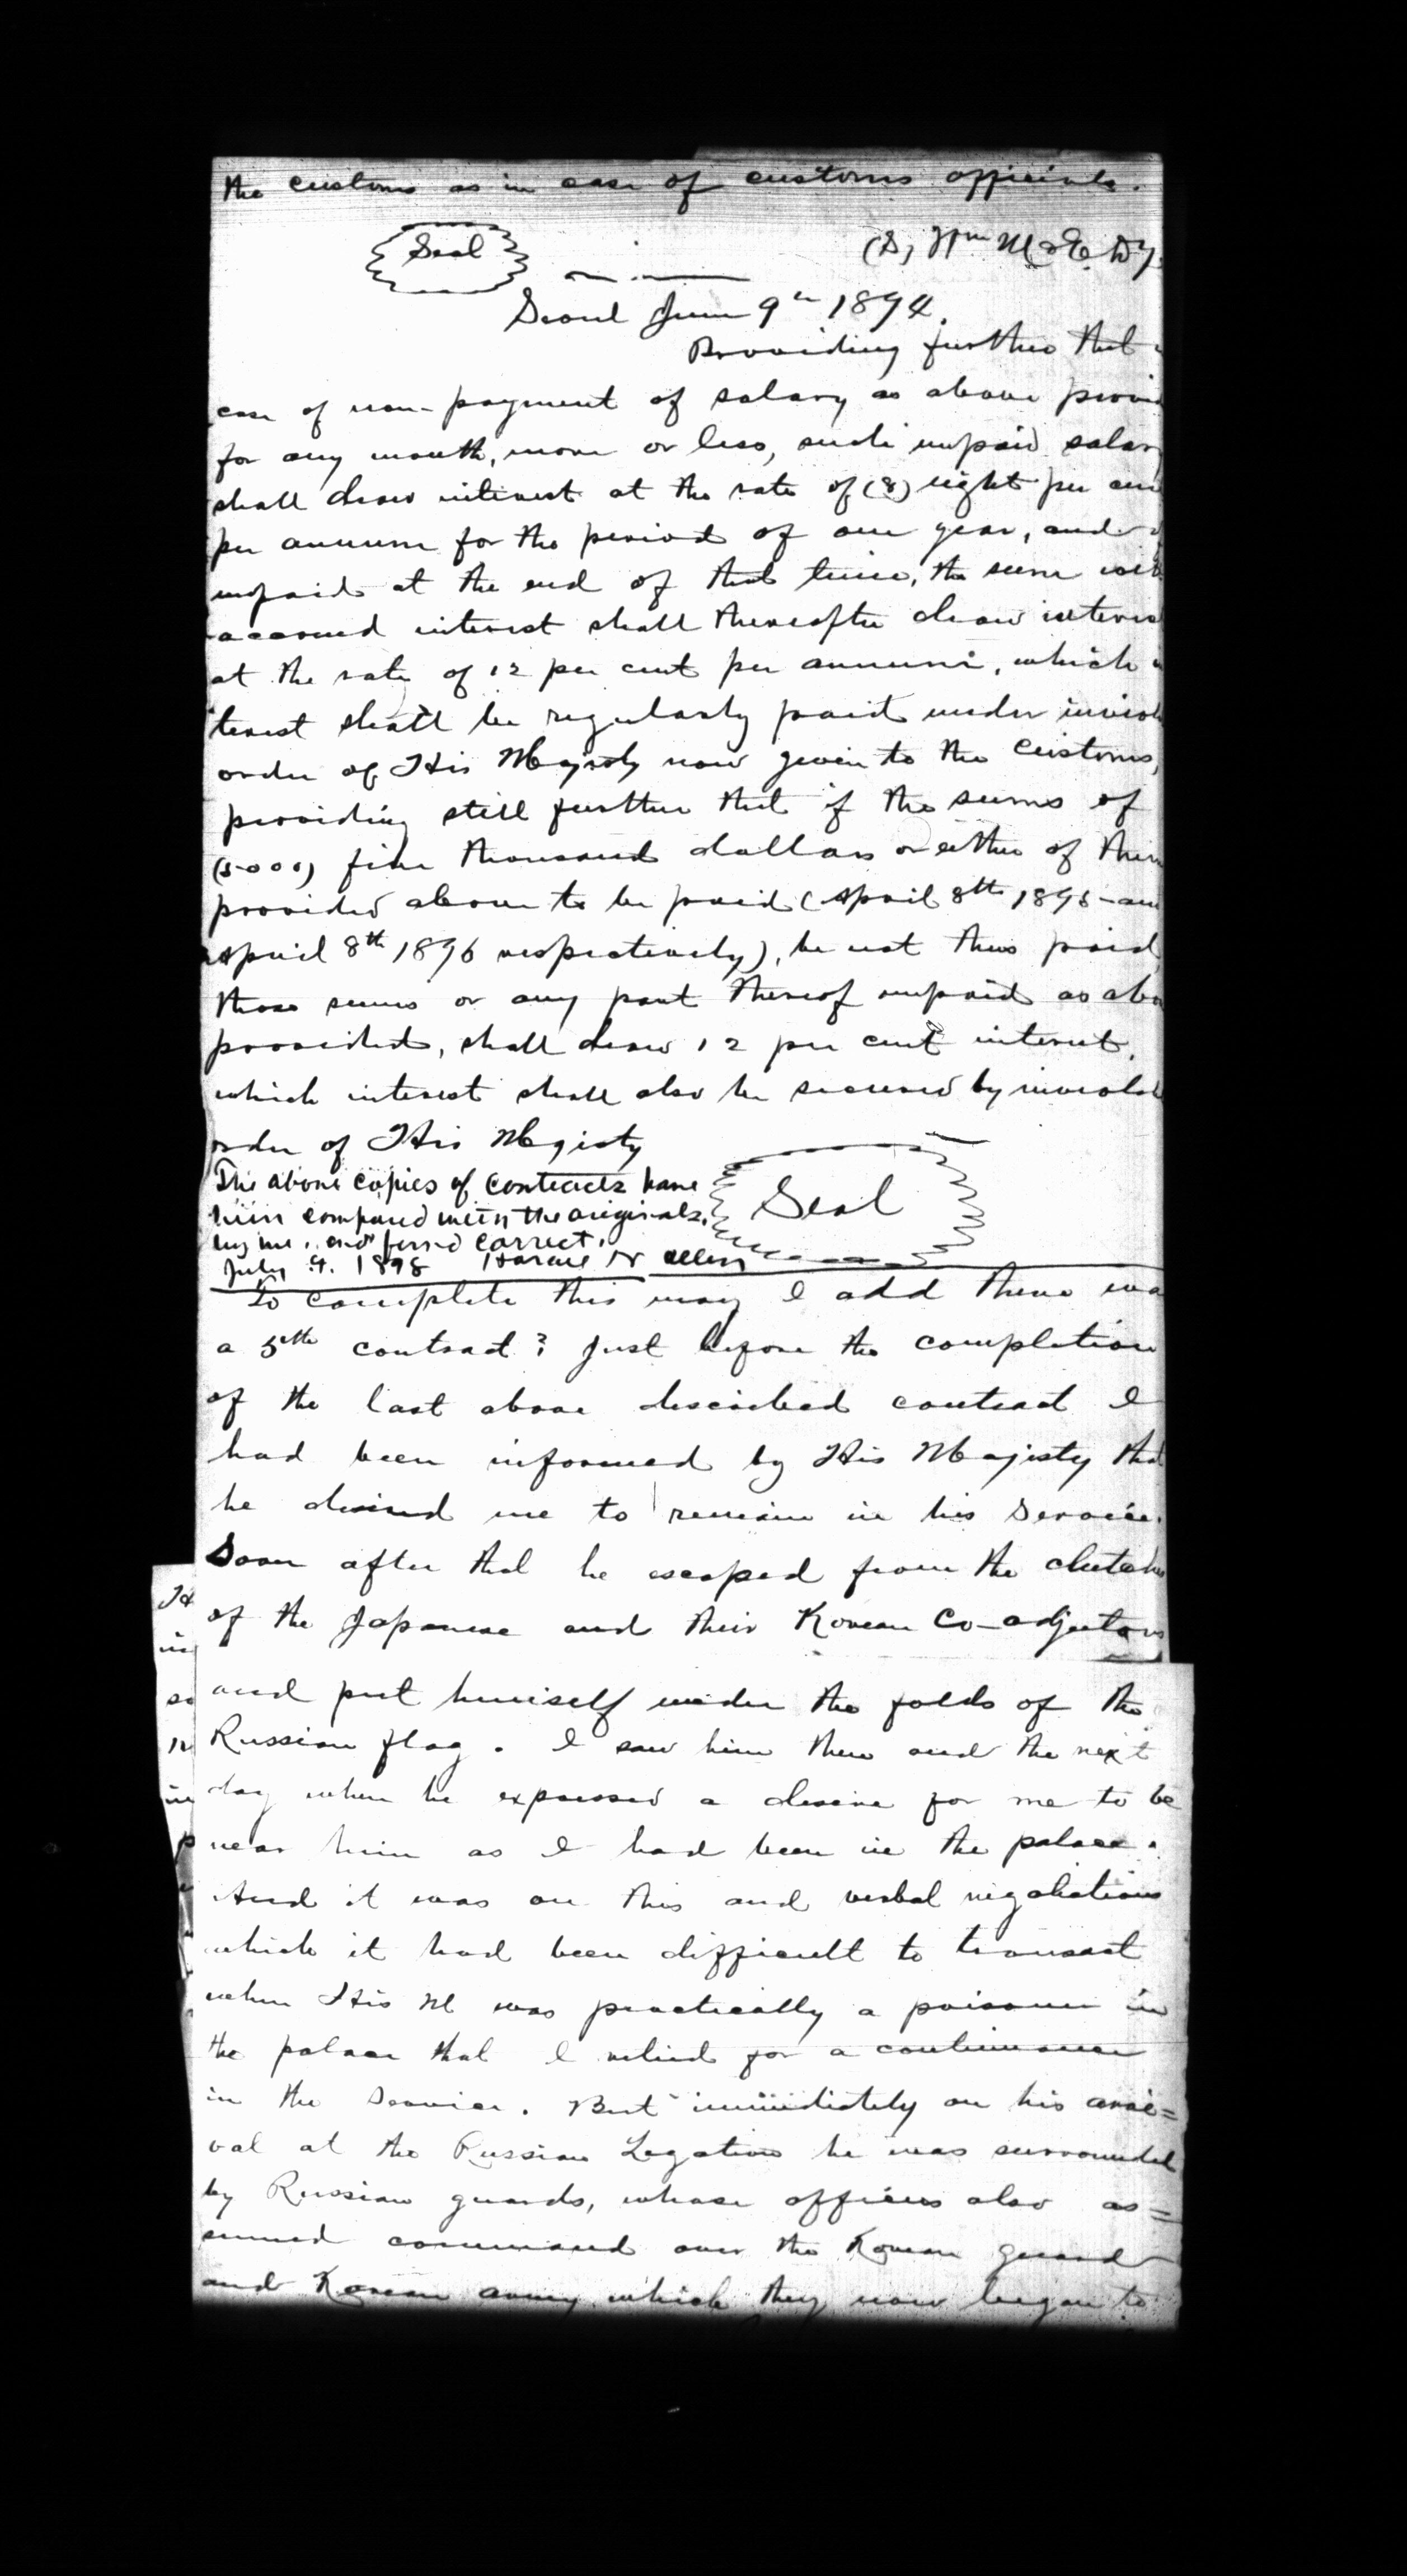 the customs as in case of customs officials.
Seal
(S) Wm McE Dy
Seoul June 9th 1894.
Providing further that
case of non-payment of salary as above provid
for any month, more or less, such unpaid salary
shall draw interest at the rate of (8) eight per cen
per annum for the period of one year, and
unpaid at the end of that time, the sum with
accrued interest shall thereafter draw interest
at the rate of 12 per cent per annum, which in
terest shall be regularly paid under inviol
order of His Majesty now given to the Customs,
providing still further that if the sums of
(5000) five thousand dollars or either of them
provided above to be paid (April 8th 1895 - and
April 8th 1896 respectively), be not thus paid,
those sums or any part thereof unpaid as abo
provided, shall draw 12 per cent interest,
which interest shall also be secured by inviolab
order of His Majesty
Seal
The above copies of contracts have
been compared with the originals,
by me, and found correct.
July 9. 1898 Horace N Allen
To complete this may I add there was
a 5th contract? Just before the completion
of the last above described contract I
had been informed by His Majesty that
he desired me to remain in his service.
Soon after that he escaped from the clutches
of the Japanese and their Korean Co-adjutors
and put himself under the folds of the
Russian flag. I saw him then and the next
day when he expressed a desire for me to be
near him as I had been in the palace.
And it was on this and verbal negotiations
which it had been difficult to transact
when His M was practically a prisoner in
the palace that I relied for a continuance
in the service. But immediately on his arri=
val at the Russian Legation he was surrounded
by Russian guards, whose officers also as=
sumed command over the Korean guard
and Korean army which they now began to